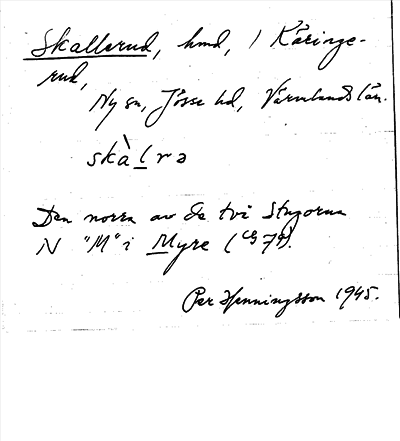 Skallerud, hmd, / Käringe-
rud,
Ny sn, Jösse hd, Värmlands län.
skàlrə
Den norra av de två stugorna
N "M" i Myre (LG 79).
Per Henningsson 1945.